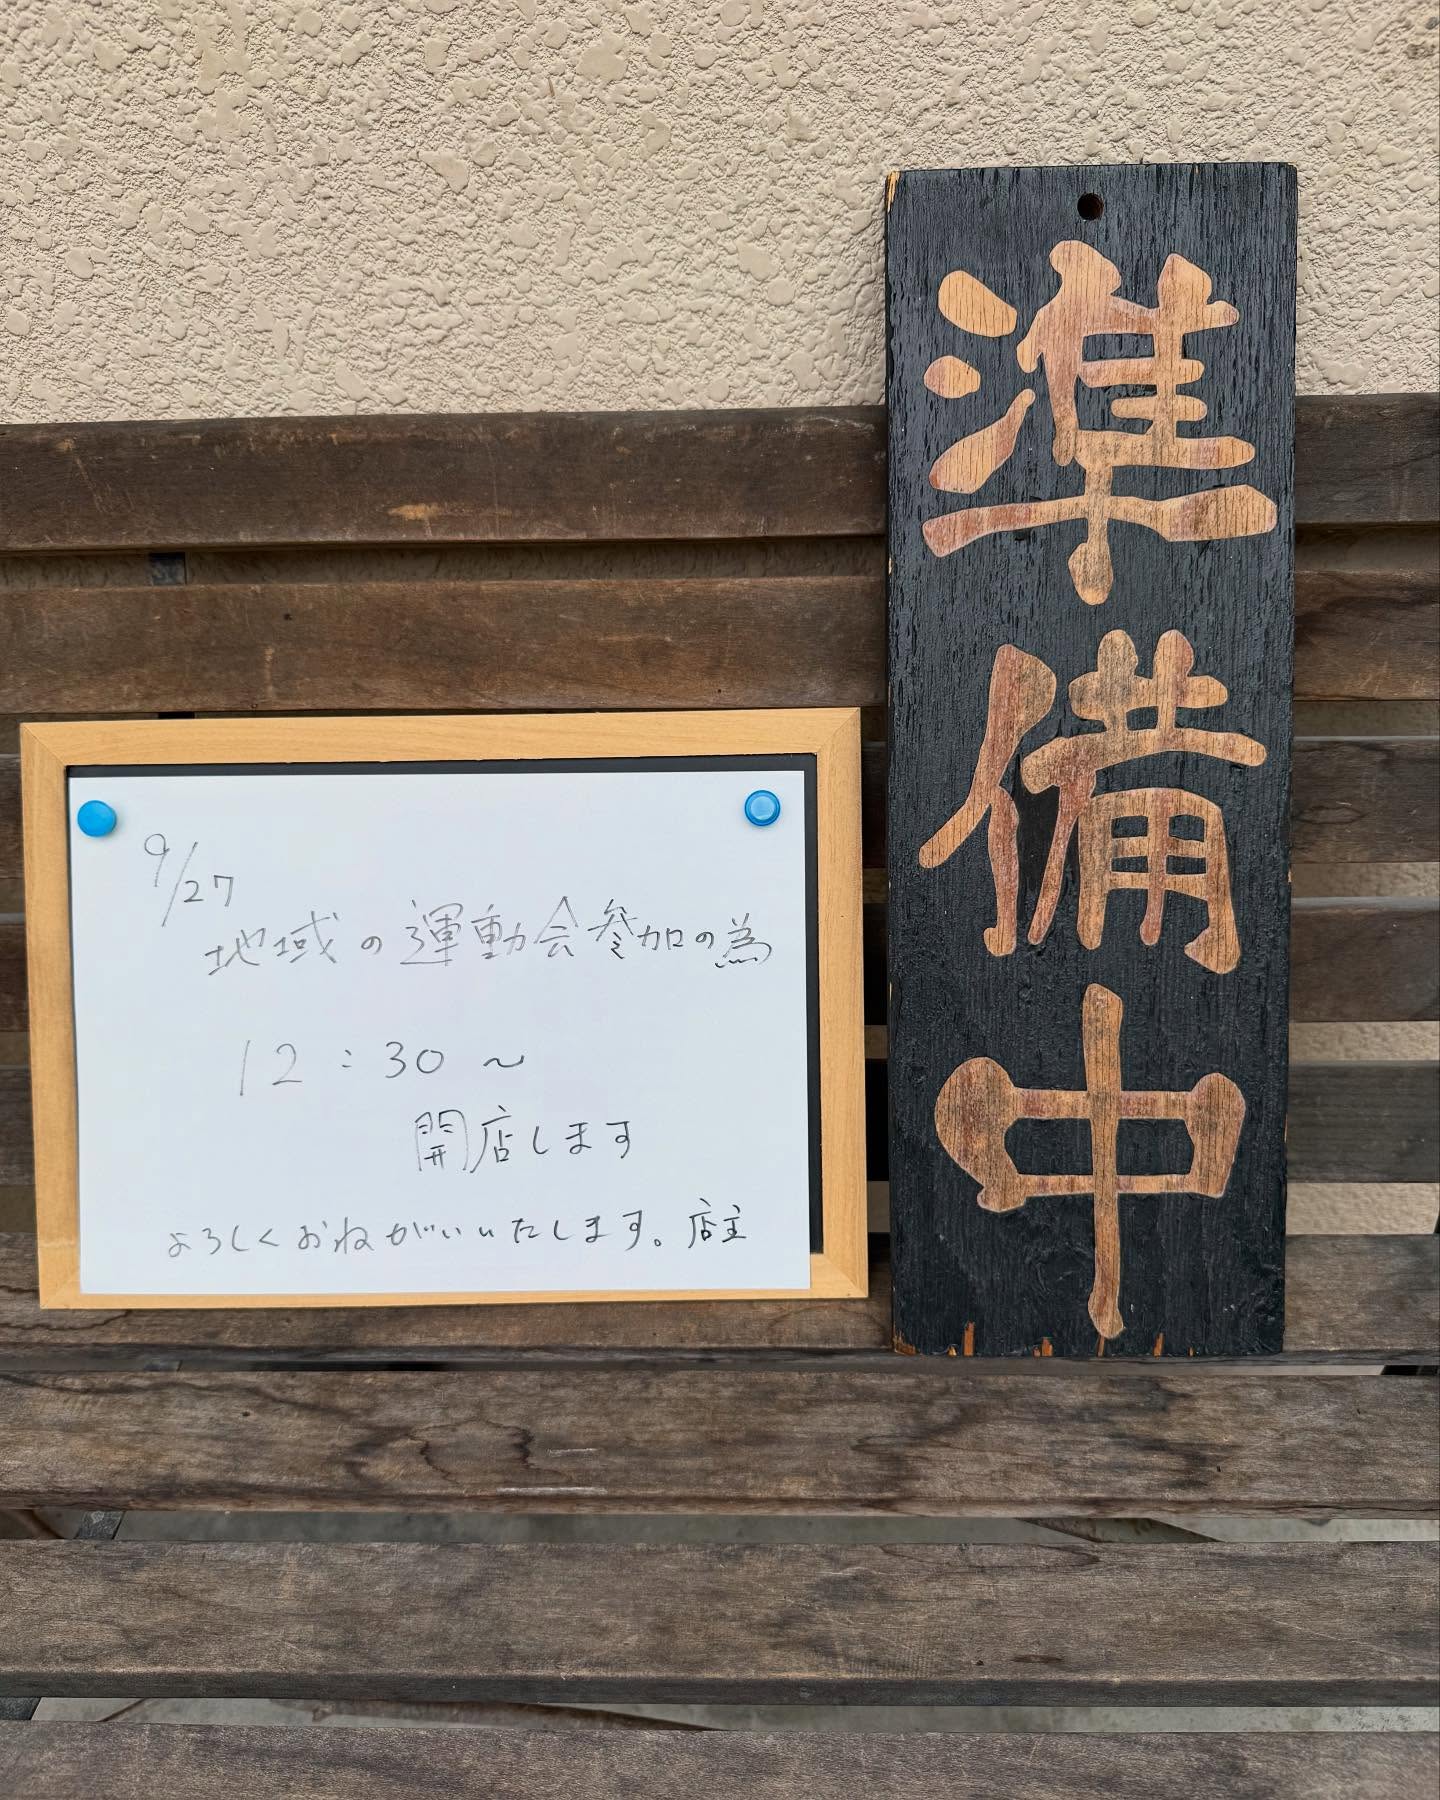 9/27
地域の運動会参加の為
12:30～
開店します
よろしくおねがいいたします。店主
準備中